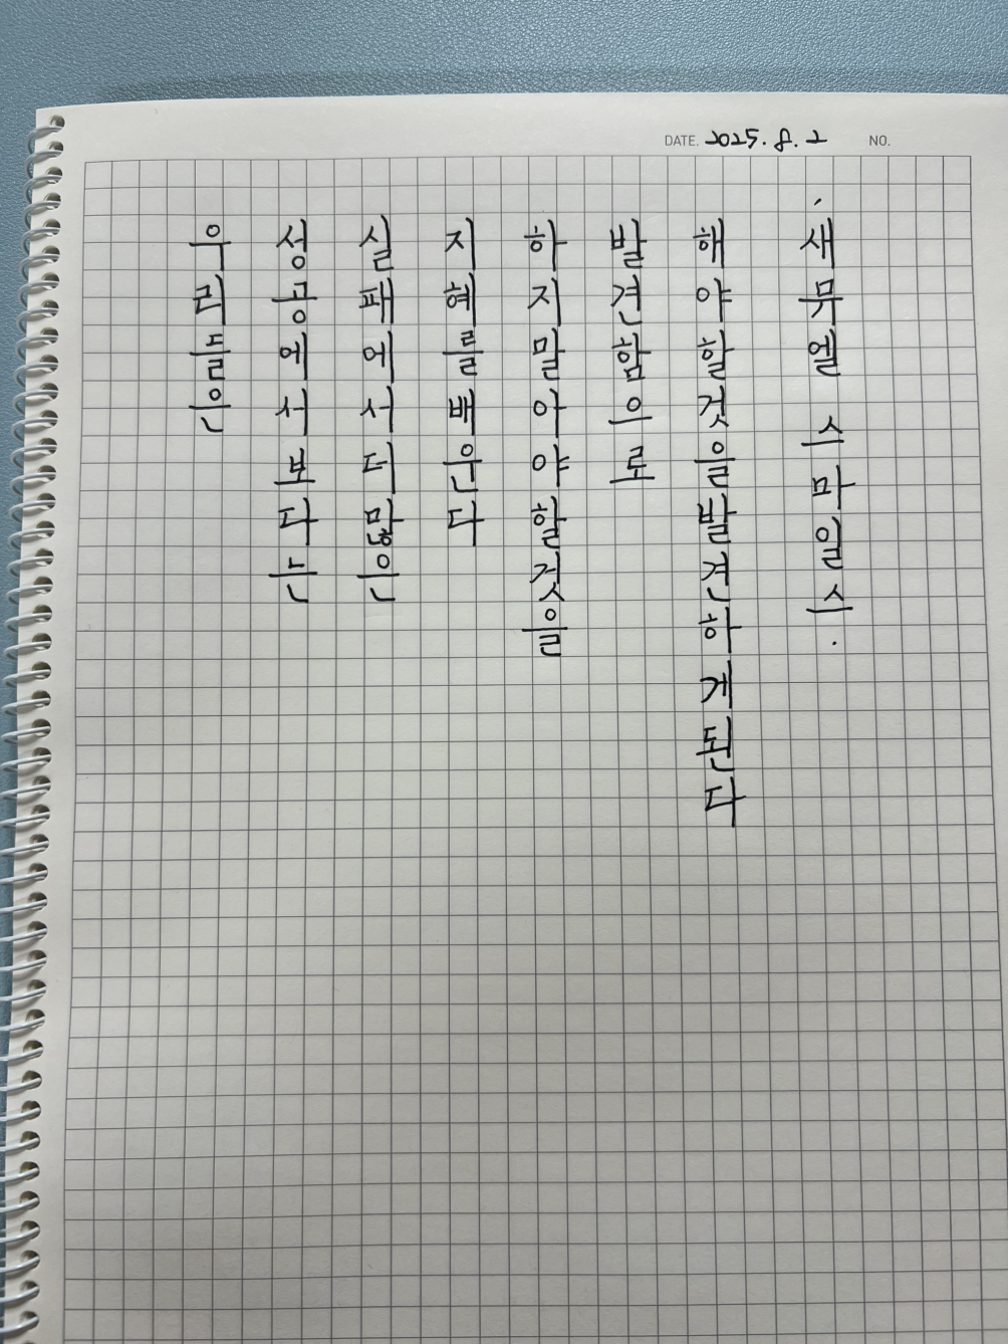 DATE. 2025. 8. 2 NO.
우리들은
성공에서보다는
실패에서더많은
지혜를배운다
하지말아야할것을
발견함으로
해야할것을발견하게된다
·새뮤엘 스마일스·